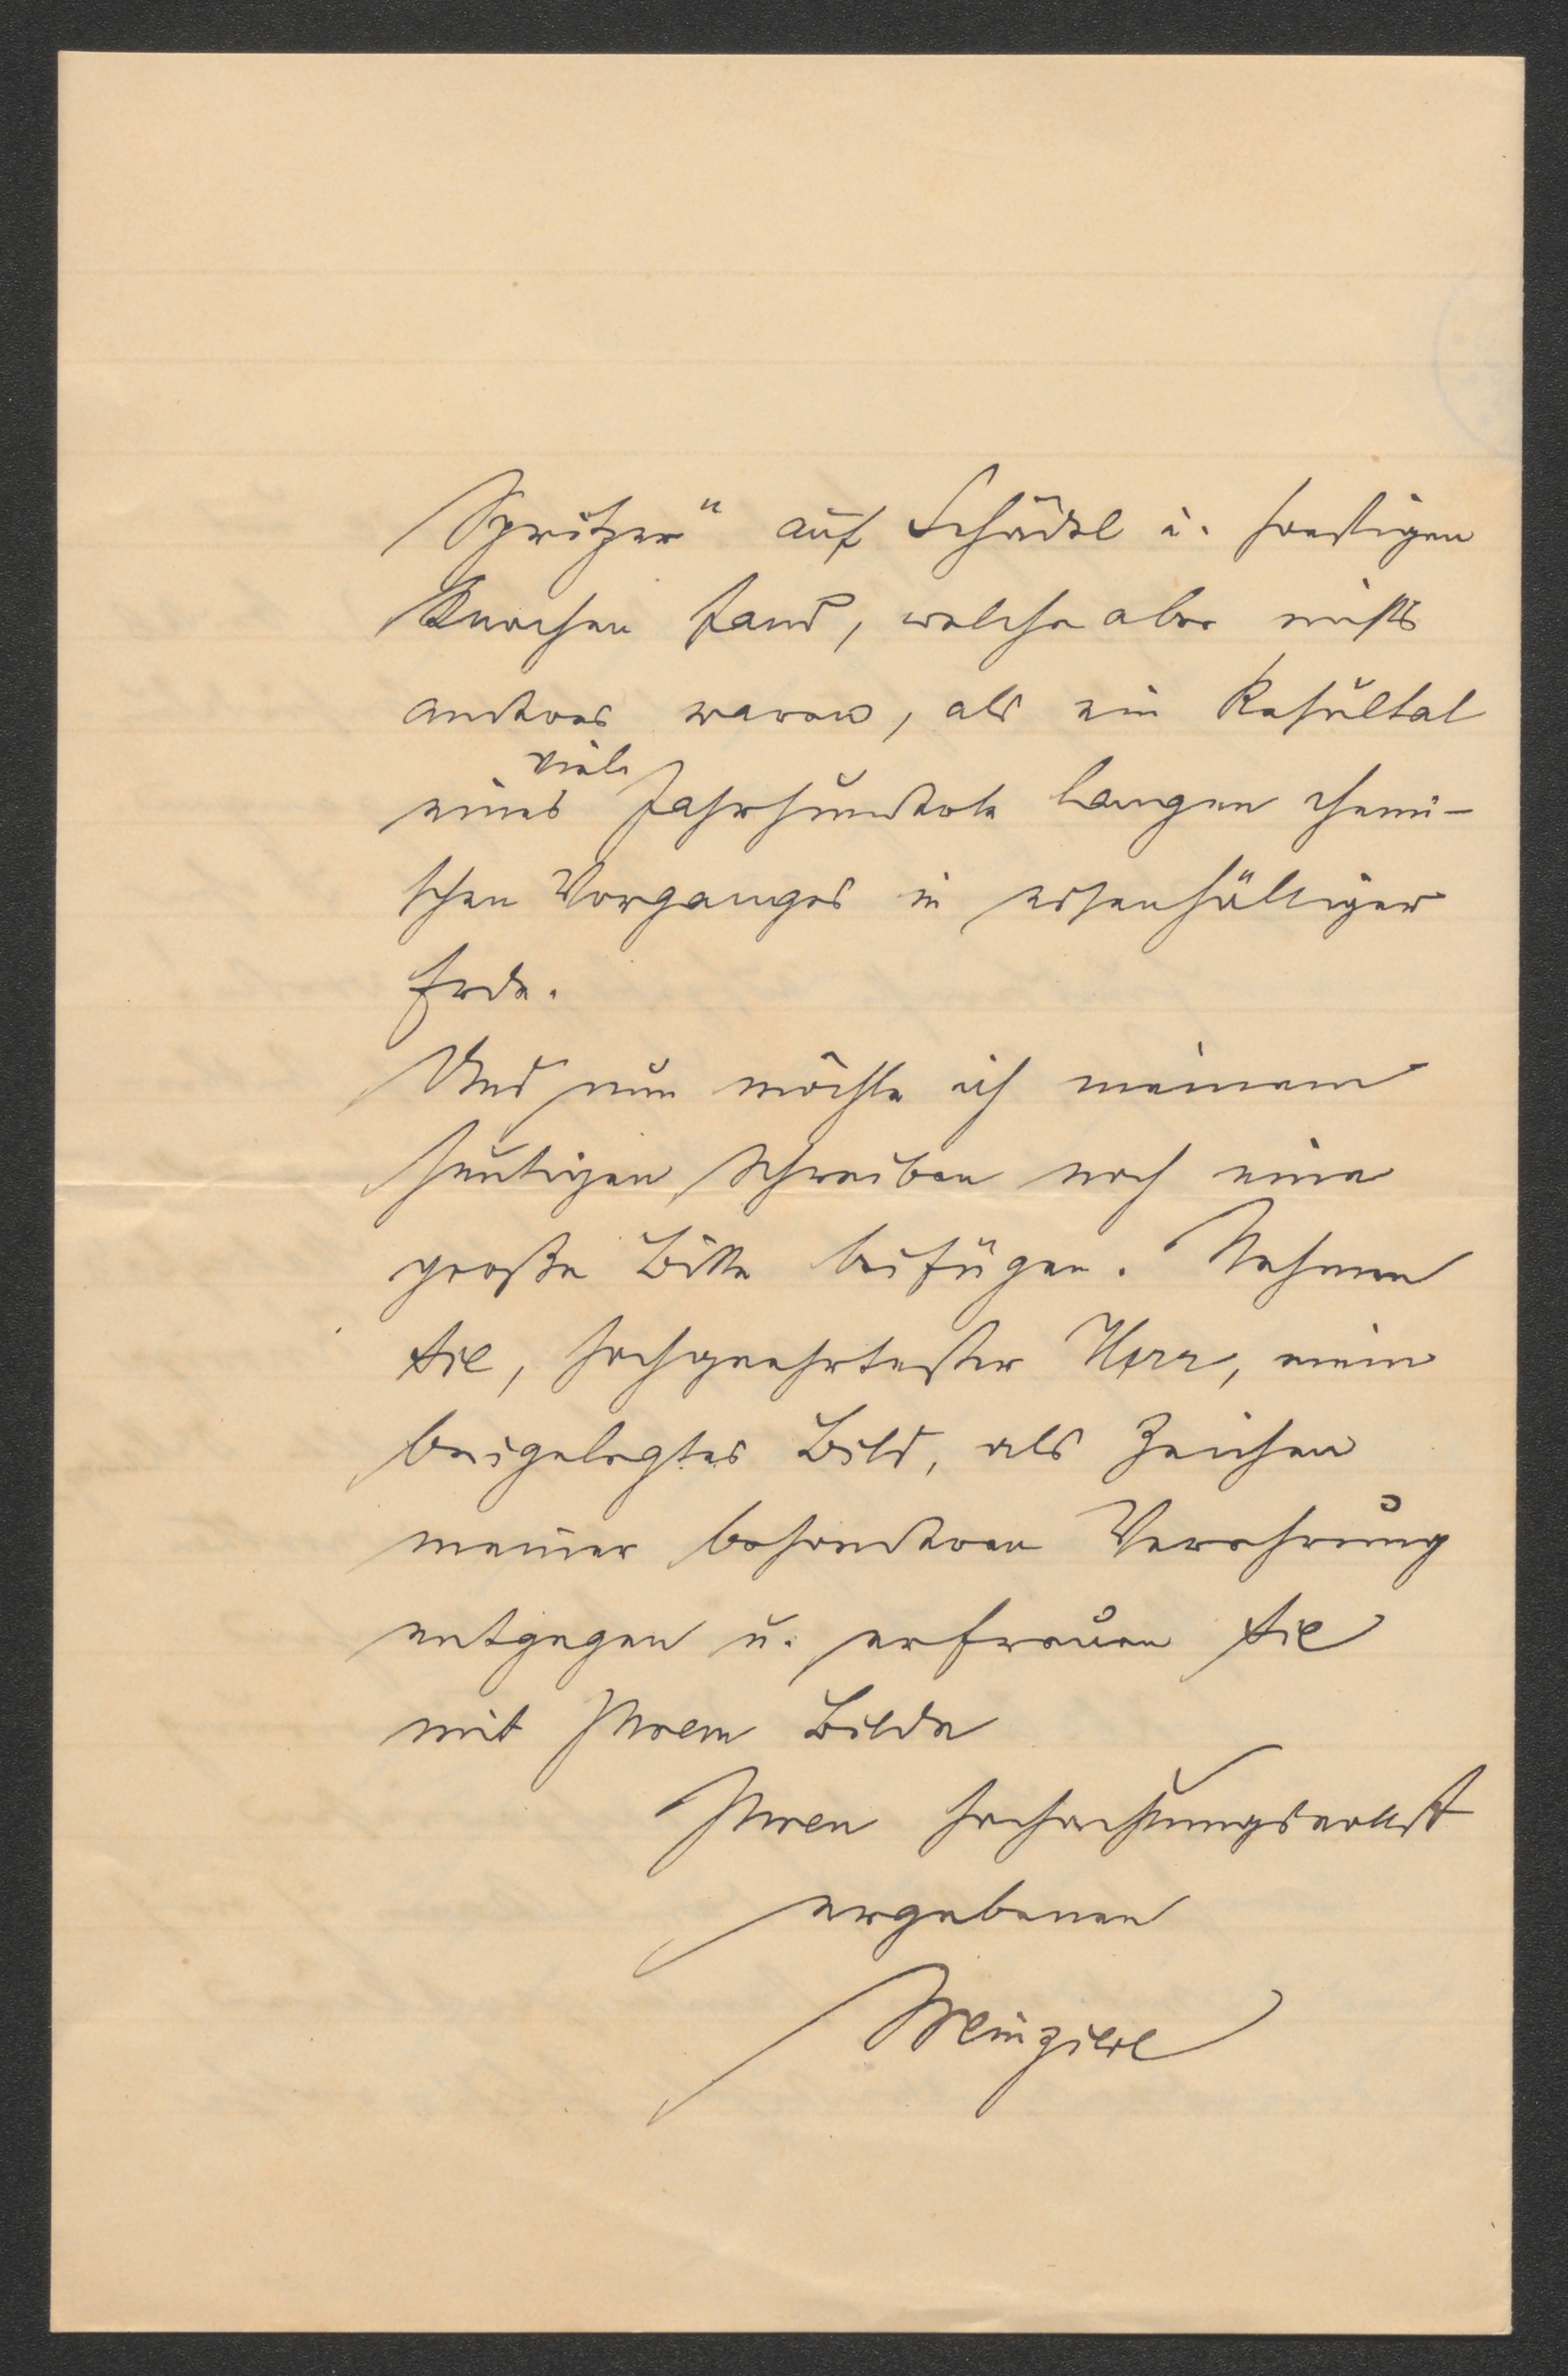 Spritzer" auf Schädel u. sonstigen
Knochen fand, welche aber nichts
anderes waren, als ein Resultat
eines viele Jahrhunderte langen chemi-
schen Vorganges in eisenhältiger
Erde.
Und nun möchte ich meinem
heutigen Schreiben noch eine
große Bitte beifügen. Nehmen
Sie, hochgeehrtester Herr, mein
beigelegtes Bild, als Zeichen
meiner besonderen Verehrung
entgegen u. erfreuen Sie
mit Ihrem Bilde
Ihren hochachtungsvollst
ergebenen
Weinzierl